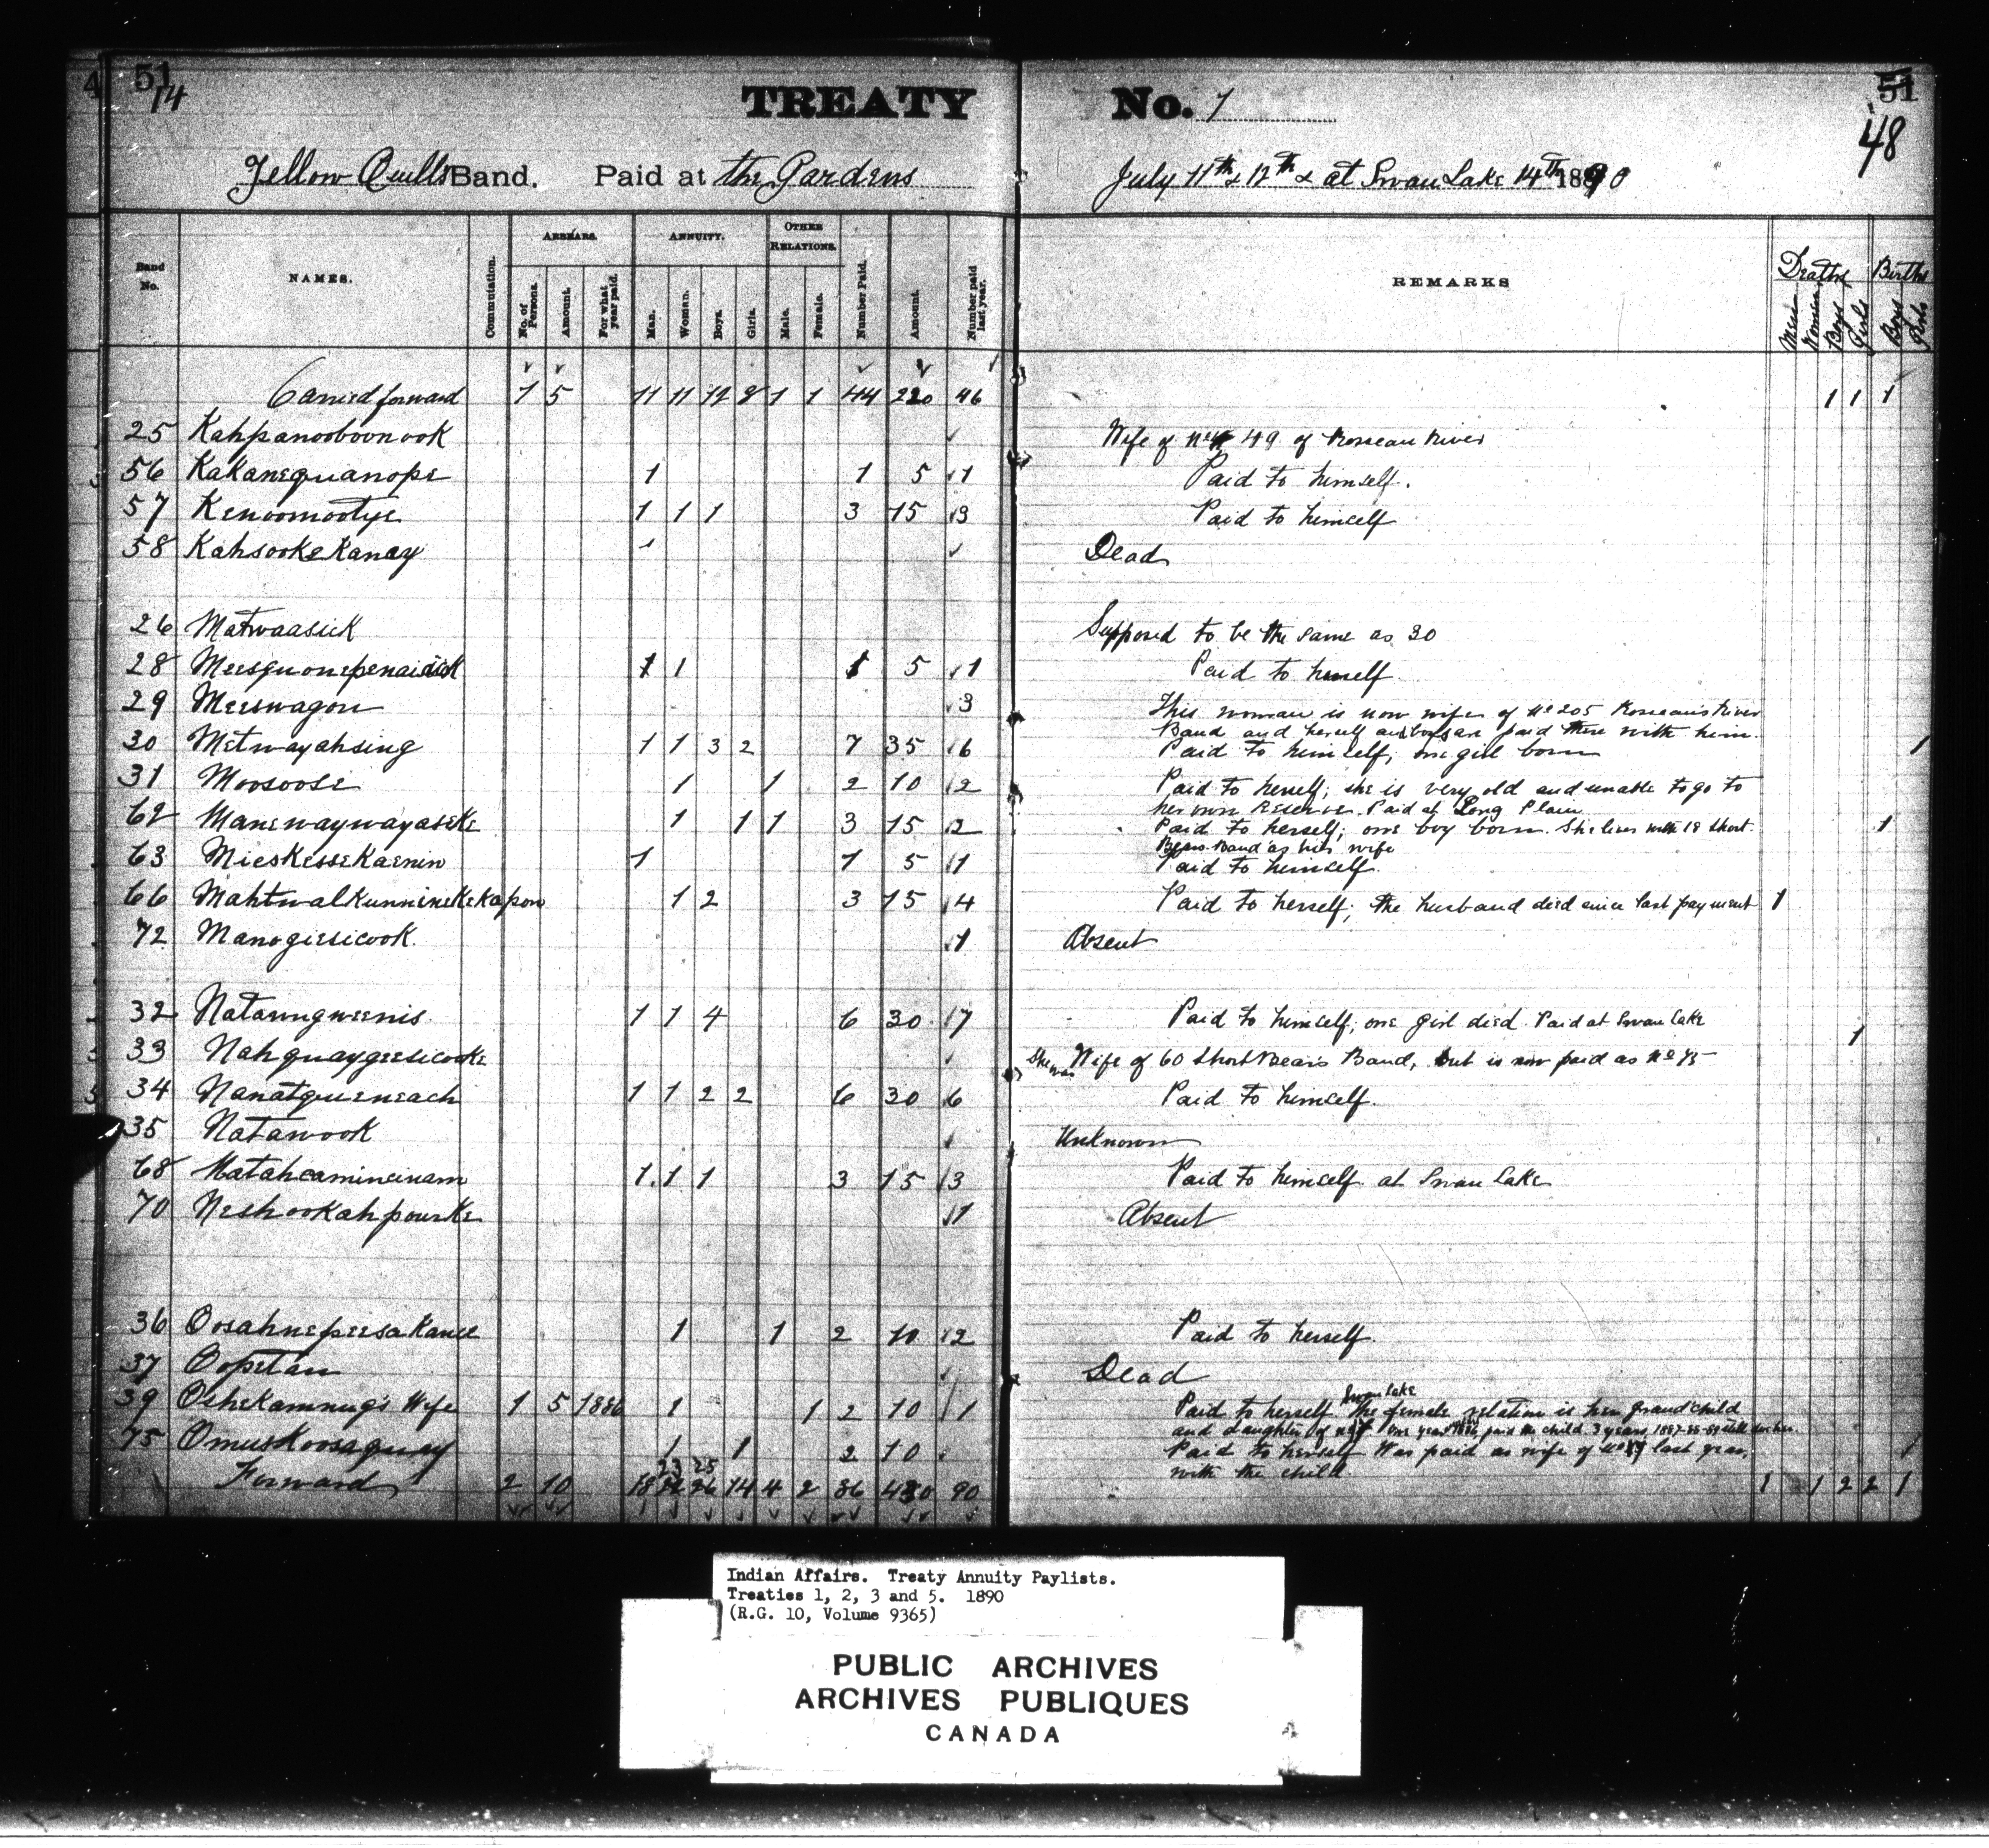 4 51 14 TREATY No. 1 51
48
Yellow Quills Band. Paid at the Gardens July 11th & 12th & at Swan Lake 14th 1890
Band No. NAMES. Commutation. ARREARS. No. of Persons. Amount. For what year paid. ANNUITY. Man. Woman. Boys. Girls. OTHER RELATIONS. Male. Female. Number Paid. Amount. Number paid last year. REMARKS Deaths Men Women Boys Girls Births Boys Girls
Carried forward 1 5 11 11 12 8 1 1 44 220 46 1 1 1
25 Kahpanooboonook Wife of No 49 of Roseau River
56 Kakanequanope 1 1 5 1 Paid to himself.
57 Kenoomootye 1 1 1 3 15 3 Paid to himself
58 Kahsookekanay Dead
26 Matwaasick Supposed to be the same as 30
28 1 1 5 1 Paid to herself
29 Meeswagon 3 This woman is now wife of No 205 Roseau River
Band and herself and boys are paid there with him.
30 Metwayahsing 1 1 3 2 7 35 6 Paid to himself, one girl born 1
31 Moosoose 1 1 2 10 2 Paid to herself; she is very old and unable to go to
her own Reserve. Paid at Long Plain
62 Manewaywayaseke 1 1 1 3 15 2 Paid to herself; one boy born. She lives with 18 Short 1
Bears Band as his wife
63 Mieskessekaenin 1 1 5 1 Paid to himself.
66 Mahtwalkunninekekapow 1 2 3 15 4 Paid to herself; the husband died since last payment 1
72 Manogiesicook. 1 Absent
32 Natawugweenis 1 1 4 6 30 7 Paid to himself, one girl died. Paid at Swan Lake 1
33 Nahquaygeesicooke She was Wife of 60 Short Bears Band, but is now paid as No 75
34 Nanatgueneach 1 1 2 2 6 30 6 Paid to himself.
35 Natawook Unknown
68 Natahcamincinam 1 1 1 3 15 3 Paid to himself at Swan Lake
70 Neshookahpourke 1 Absent
36 Oosahnepeesakanee 1 1 2 10 2 Paid to herself.
37 Oopetan Dead
39 Oshekamnug's Wife 1 5 1886 1 1 2 10 1 Paid to herself Swan Lake The female relation is her grandchild
and daughter of one year 1886, paid the child 3 years, 1887-88-89 still due her
75 Omuskoosequay 1 1 2 10 Paid to herself Was paid as wife of last year, 1
with the child.
Forward 2 10 18 23 25 14 4 2 86 430 90 1 1 2 2 1
Indian Affairs. Treaty Annuity Paylists.
Treaties 1, 2, 3 and 5. 1890
(R.G. 10, Volume 9365)
PUBLIC ARCHIVES
ARCHIVES PUBLIQUES
CANADA